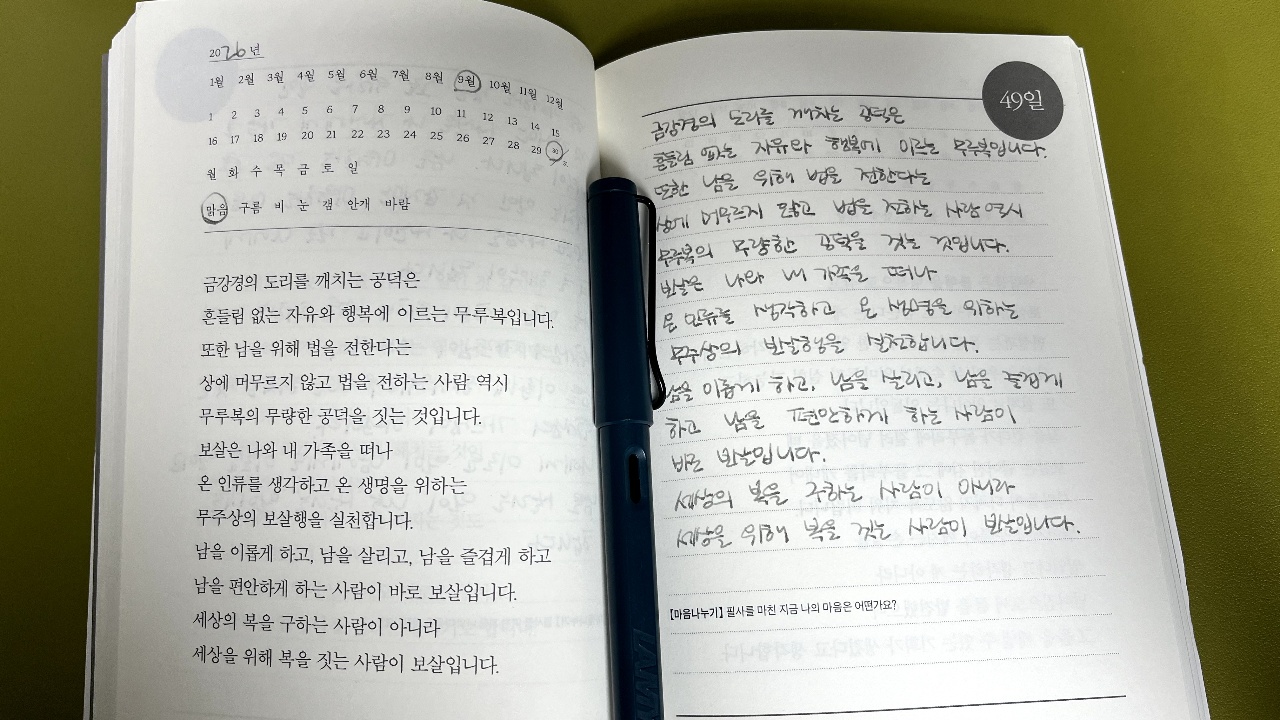 2026년
1월 2월 3월 4월 5월 6월 7월 8월 9월 10월 11월 12월
1 2 3 4 5 6 7 8 9 10 11 12 13 14 15
16 17 18 19 20 21 22 23 24 25 26 27 28 29 30 31
월 화 수 목 금 토 일
맑음 구름 비 눈 갬 안개 바람
금강경의 도리를 깨치는 공덕은
흔들림 없는 자유와 행복에 이르는 무루복입니다.
또한 남을 위해 법을 전한다는
상에 머무르지 않고 법을 전하는 사람 역시
무루복의 무량한 공덕을 짓는 것입니다.
보살은 나와 내 가족을 떠나
온 인류를 생각하고 온 생명을 위하는
무주상의 보살행을 실천합니다.
남을 이롭게 하고, 남을 살리고, 남을 즐겁게 하고
남을 편안하게 하는 사람이 바로 보살입니다.
세상의 복을 구하는 사람이 아니라
세상을 위해 복을 짓는 사람이 보살입니다.
49일
금강경의 도리를 깨치는 공덕은
흔들림 없는 자유와 행복에 이르는 무루복입니다.
또한 남을 위해 법을 전한다는
상에 머무르지 않고 법을 전하는 사람 역시
무루복의 무량한 공덕을 짓는 것입니다.
보살은 나와 내 가족을 떠나
온 인류를 생각하고 온 생명을 위하는
무주상의 보살행을 실천합니다.
남을 이롭게 하고, 남을 살리고, 남을 즐겁게
하고 남을 편안하게 하는 사람이
바로 보살입니다.
세상의 복을 구하는 사람이 아니라
세상을 위해 복을 짓는 사람이 보살입니다.
[마음나누기] 필사를 마친 지금 나의 마음은 어떤가요?
LAMY